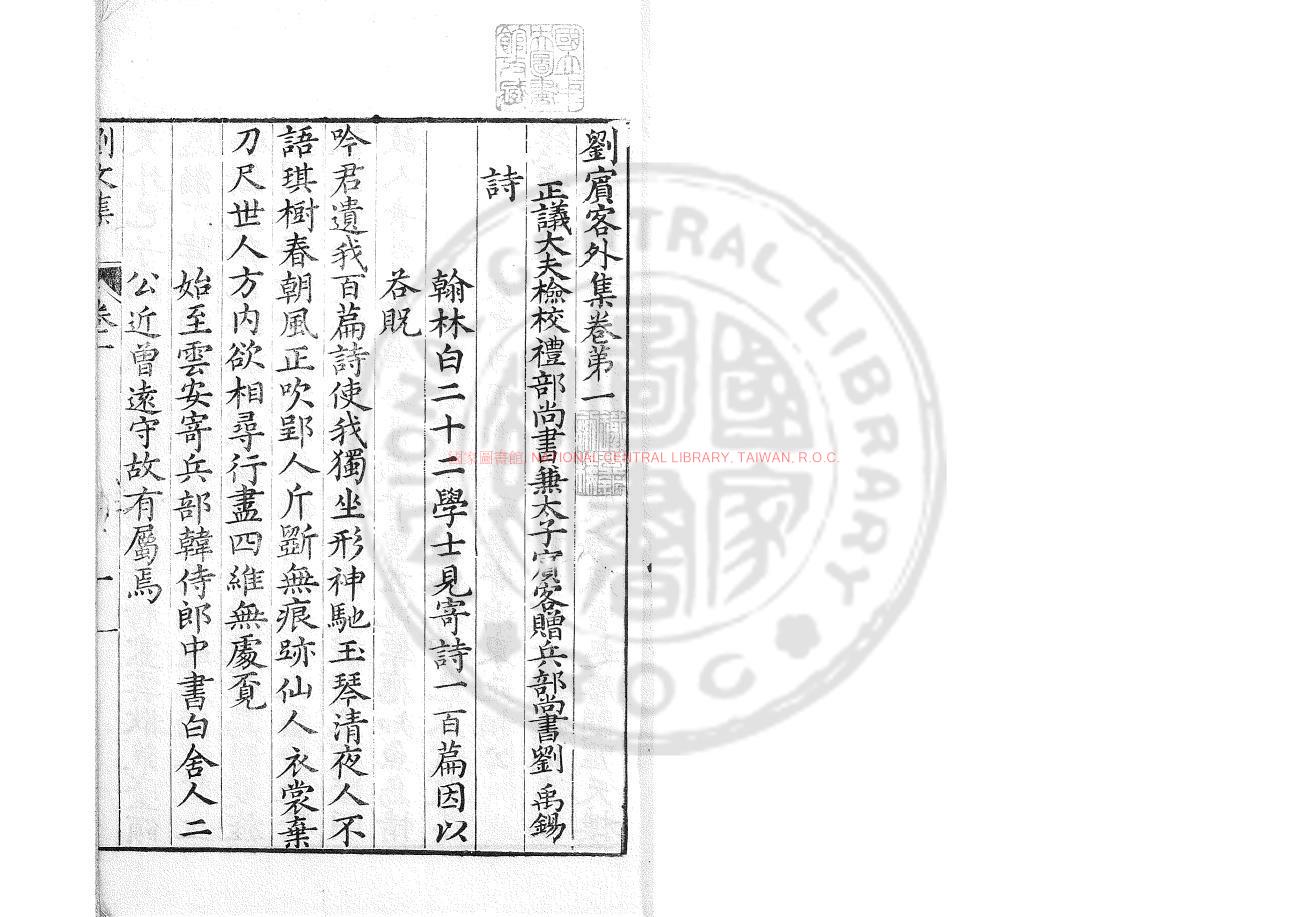 劉賓客外集卷第一
正議大夫檢校禮部尚書兼太子賓客贈兵部尚書劉 禹錫
詩
翰林白二十二學士見寄詩一百篇因以
荅貺
吟君遺我百篇詩使我獨坐形神馳玉琴清夜人不
語琪樹春朝風正吹郢人斤斲無痕跡仙人衣裳棄
刀尺世人方內欲相尋行盡四維無處覔
始至雲安寄兵部韓侍郎中書白舍人二
公近曽遠守故有屬焉
劉文集 卷一 一
國家圖書館, NATIONAL CENTRAL LIBRARY, TAIWAN, R.O.C.
NATIONAL CENTRAL LIBRARY
ROC
國家圖書館
國立中央圖書館收藏